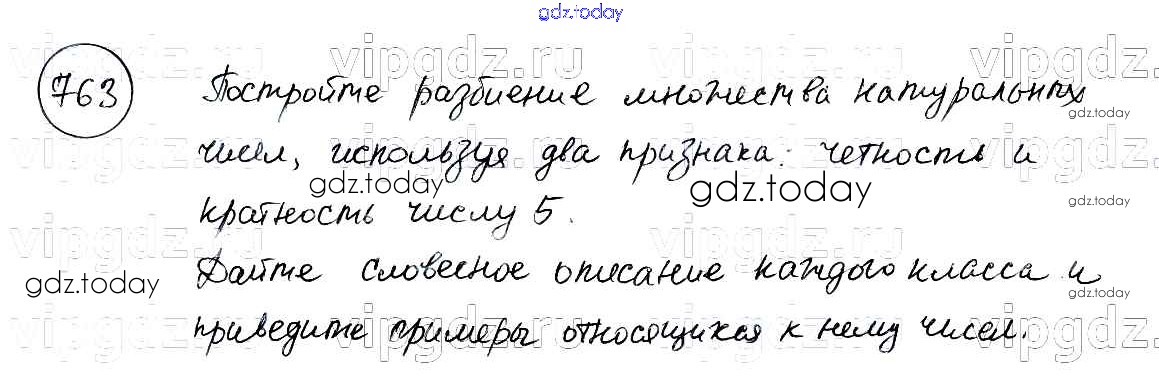 gdz.today
vipgdz.ru vipgdz.ru vipgdz.ru vipgdz.ru
763 Постройте разбиение множества натуральных
gdz.today
vipgdz.ru vipgdz.ru vipgdz.ru vipgdz.ru
чисел, используя два признака: четность и
gdz.today gdz.today gdz.today
кратность числу 5.
vipgdz.ru vipgdz.ru vipgdz.ru vipgdz.ru
Дайте словесное описание каждого класса и
gdz.today gdz.today
приведите примеры относящихся к нему чисел.
vipgdz.ru vipgdz.ru vipgdz.ru vipgdz.ru
gdz.today